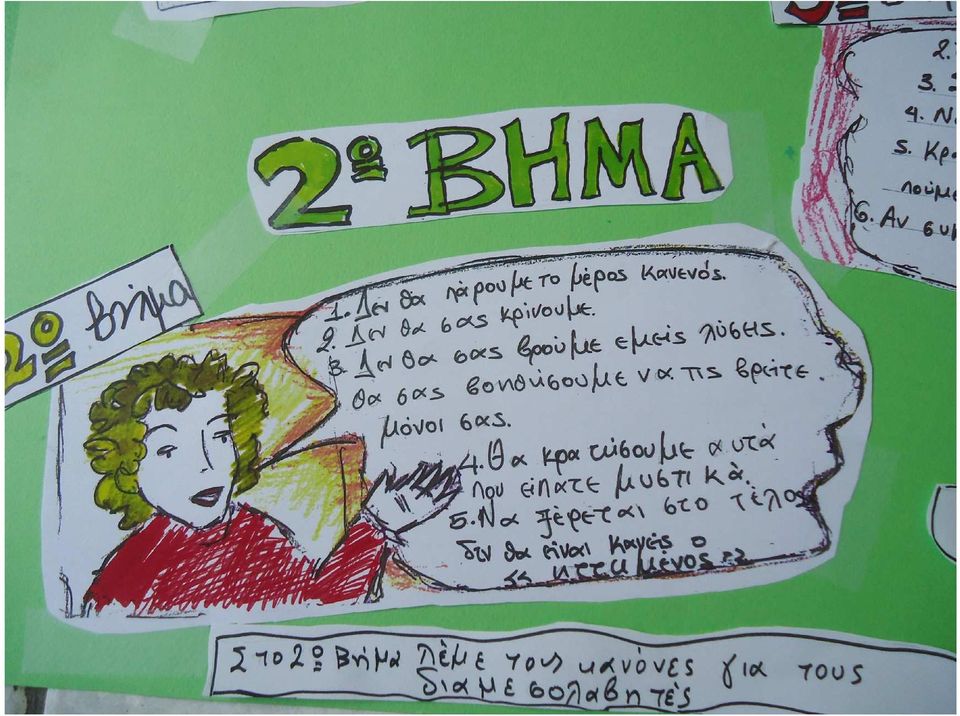 2º ΒΗΜΑ
2º βήμα
1. Δεν θα πάρουμε το μέρος κανενός.
2. Δεν θα σας κρίνουμε.
3. Δεν θα σας βρούμε εμείς λύσεις.
θα σας βοηθήσουμε να τις βρείτε.
μόνοι σας.
4. Θα κρατήσουμε αυτά
που είπατε μυστικά.
5. Να ξέρεται στο τέλος
δεν θα είναι κανείς ο
<< ηττημένος >>
Στο 2º Βήμα λέμε τους κανόνες για τους
διαμεσολαβητές
2.
3.
4. Ν
5. Κρα
πούμε
6. Αν συμ